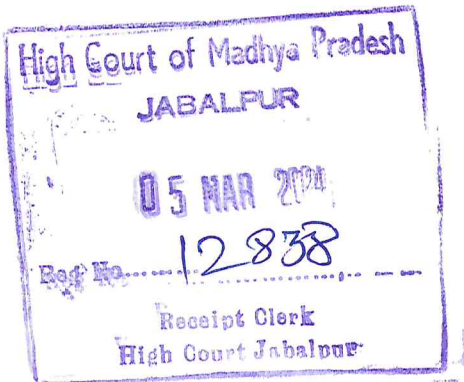 High Court of Madhya Pradesh
JABALPUR
05 MAR
Reg No. 12838
Receipt Clerk
High Court Jabalpur